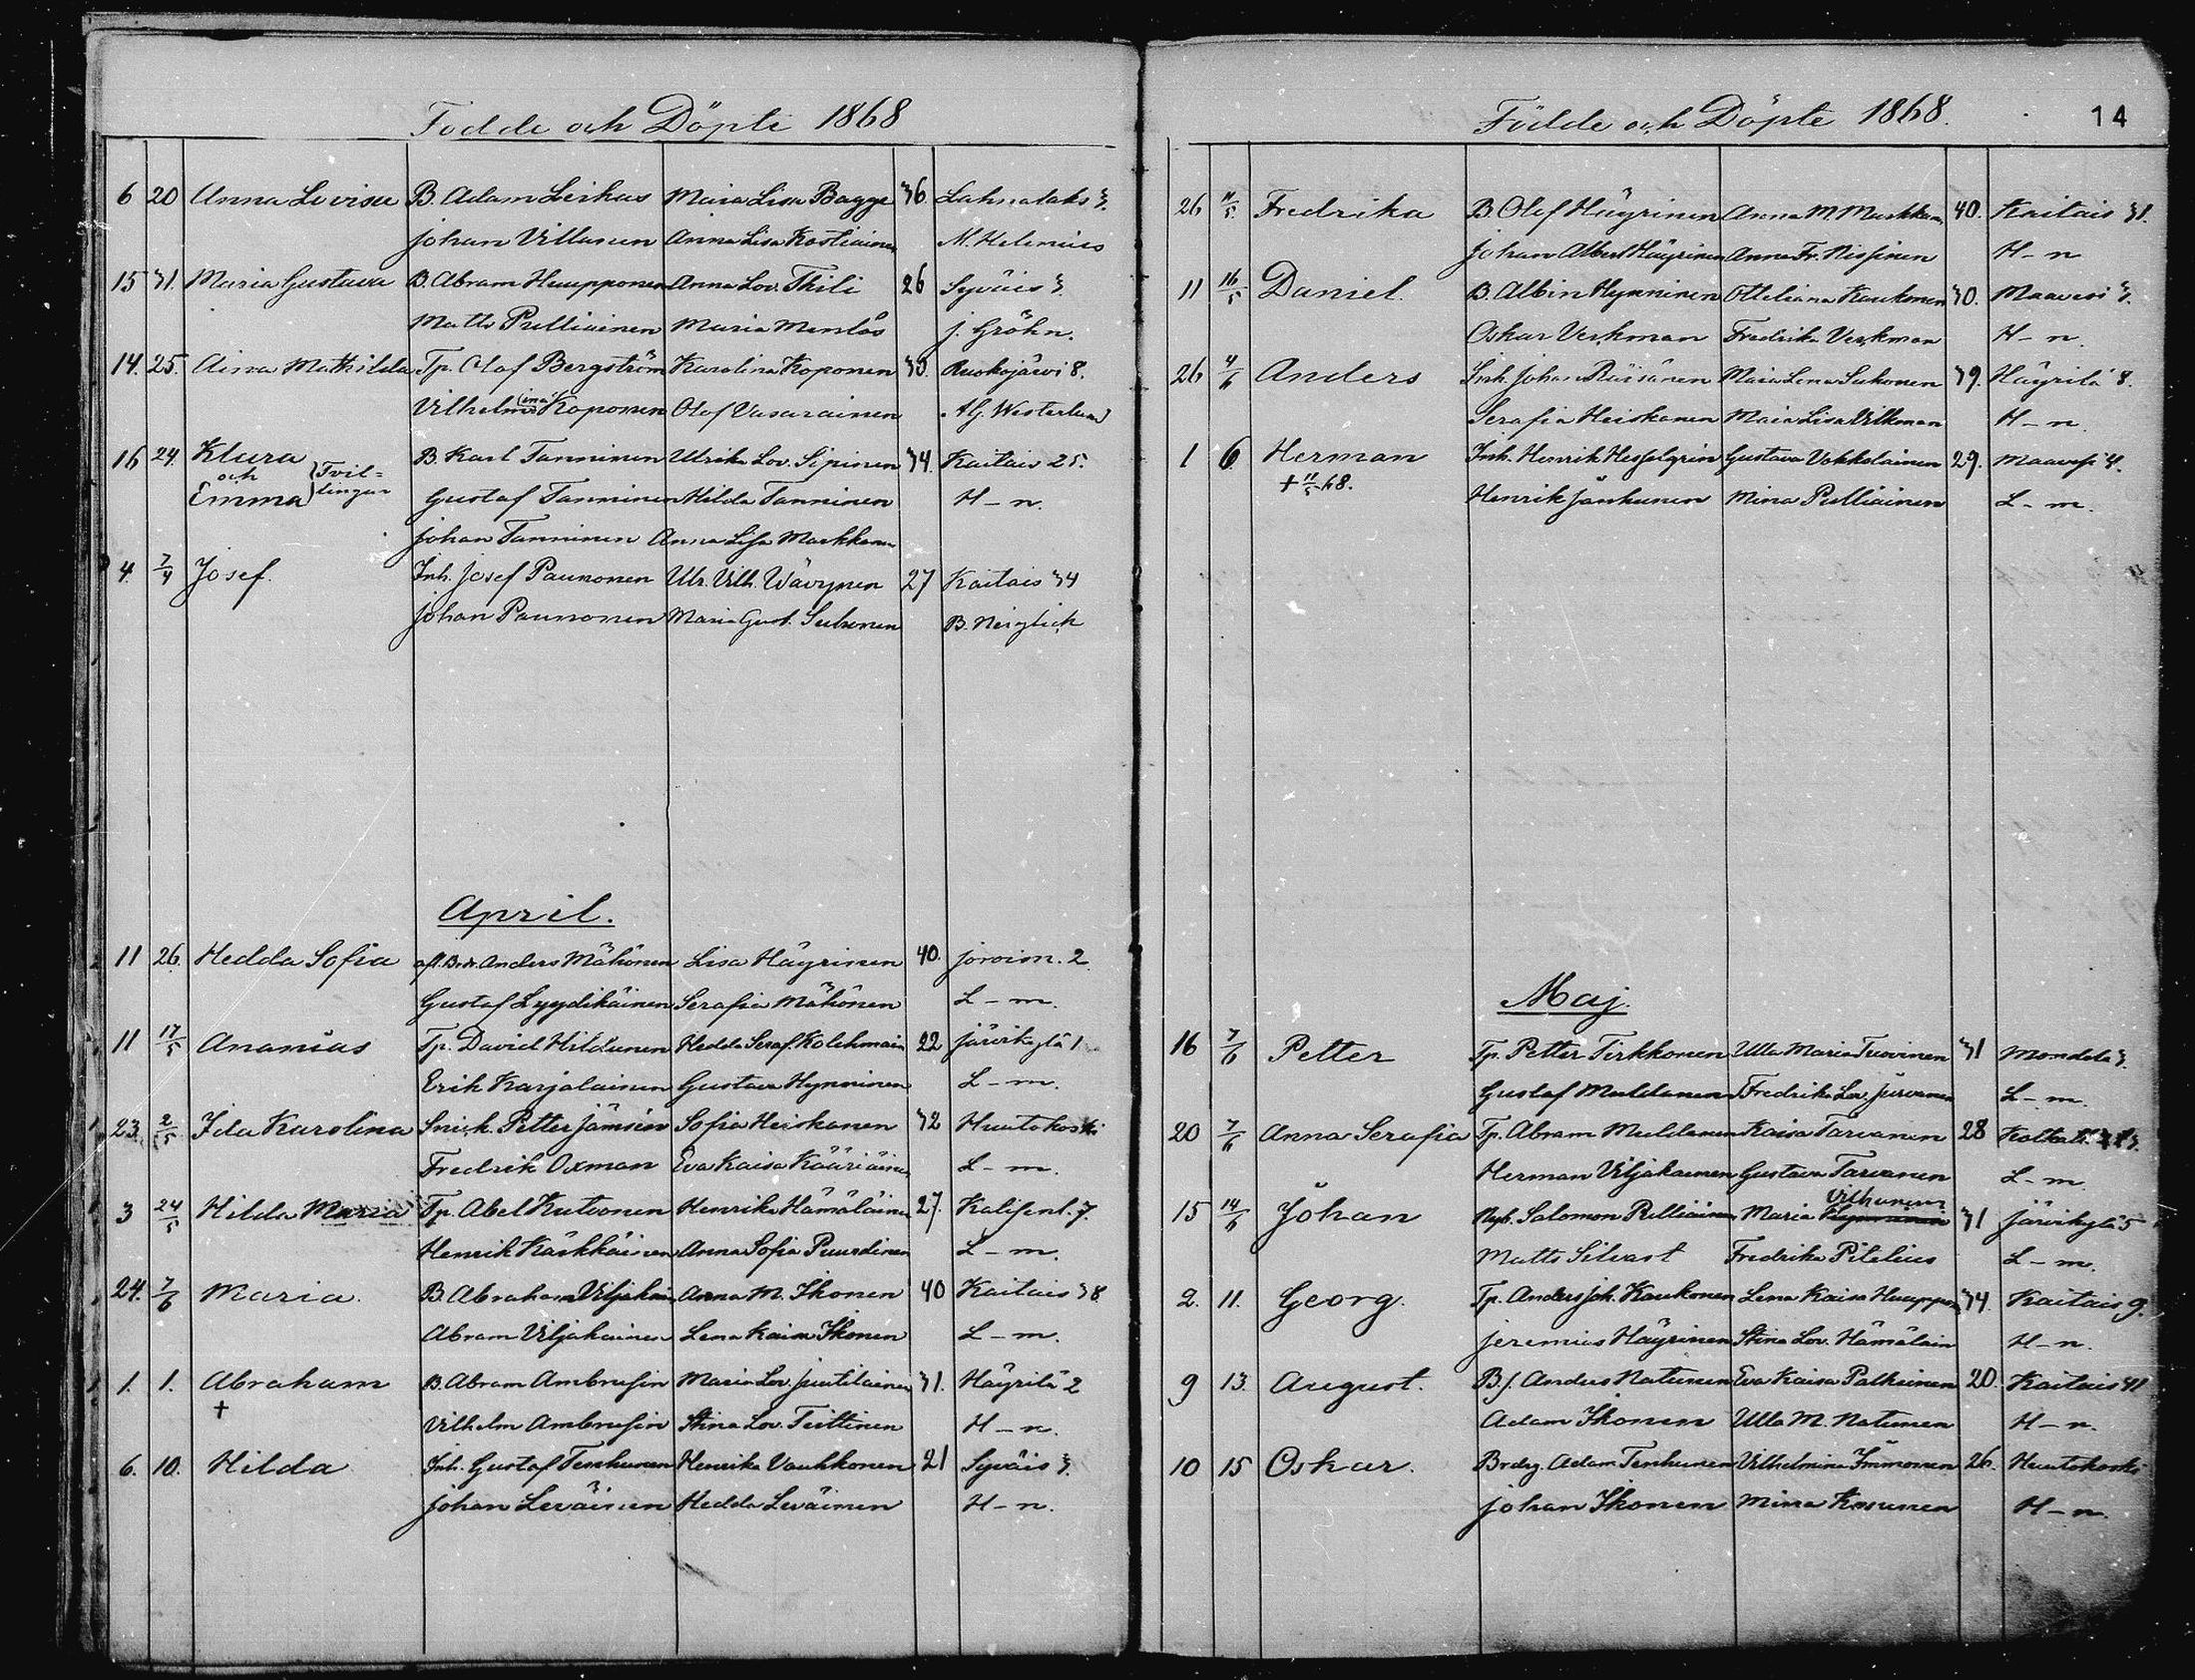 Födde och Döpte 1868
6 20 Anna Lovisa B. Adam Leskus Maia Lisa Bagge 36. Lahnalaks 3.
Johan Villanen Anna Lisa Kostiainen M. Helenius
15 31. Maria Gustava B. Abram Huupponen Anna Lov. Thili 26 Syväis 3.
Matts Pulliainen Maria Menlös J. Gröhn.
14. 25. Aina Mathilda Tp. Olof Bergström Karolina Koponen 30. Ruokojärvi 8.
Koponen Olof Vasarainen A.G. Westerlund
16 24. Klara B. Karl Tanninen Ulrika Lov. Sipinen 34. Kaitais 25.
och Tvil-
Emma lingar Gustaf Tanninen Hilda Tanninen H-n.
Johan Tanninen Anna Lisa Markkanen
4. 7/4 Josef. Inh. Josef Paunonen Ulr. Vilh. Wäyrynen 27 Kaitais 34
Johan Paunonen Maria Gust. Suhonen B. Neiglick
April.
11 26. Hedda Sofia afl. Brdr. Anders Mähönen Lisa Häyrinen 40. Joroisn. 2
Gustaf Lyydikäinen Serafia Mähönen L-m.
11 17/5 Ananias Tp. David Hildunen Hedda Seraf. Kolehmain 22 Järvikylä 1
Erik Karjalainen Gustava Hynninen L-m.
23. 2/5 Ida Karolina Snick. Petter Jämsén Sofia Heiskanen 32 Huutokoski
Fredrik Oxman Eva Kaisa Kääriäinen L-m.
3 24/5 Hilda Maria Tp. Abel Kutvonen Henrika Hämäläinen 27. 7.
Henrik Käskkäinen Anna Sofia L-m.
24. 7/6 Maria. B. Abraham Viljakain Anna M. Ikonen 40 Kaitais 38
Abram Viljakainen Lena Kaisa Ikonen L-m.
1. 1. Abraham B. Abram Ambrusin Maria Lov. Juutilainen 31. Häyrilä 2
† Vilhelm Ambrusin Stina Lov. Teittinen H-n.
6. 10. Hilda Inh. Gustaf Tenhunen Henrika Vauhkonen 21 Syväis 3.
Johan Leväinen Hedda Leväinen H-n.
Födde och Döpte 1868. 14
26 11/5. Fredrika B. Olof Häyrinen Anna M. Markkan 40. Kaitais 31.
Johan Albert Häyrinen Anna Fr. Nissinen H-n
11 16/5 Daniel. B. Albin Hynninen Otteliana Kaukonen 30. Maavesi 3.
Oskar Verkman Fredrika Verkman H-n.
26 4/6 Anders Inh. Johan Räisänen Maia Lena Suhonen 39. Häyrilä 8.
Serafia Heiskanen Maia Lisa Vilkman H-n.
1 6. Herman Inh. Henrik Hesselgrin Gustava Vokkolainen 29. Maavesi 4.
† 11/5 68. Henrik Jänhunen Mina Pulliainen L-m.
Maj.
16 7/6 Petter Tp. Petter Tirkkonen Ulla Maria Tuovinen 31 Mondola 3.
Gustaf Muldanen Fredrika Lov. L-m.
20 7/6 Anna Serafia Tp. Abram Muldanen Kaisa Tarvanen 28
Herman Viljakainen Gustava Tarvanen L-m.
Vilhunen
15 14/6 Johan Nyb. Salomon Pulliainen Maria 31 Järvikylä 5
Matts Silvast Fredrika Pitelius L-m.
2. 11. Georg. Tp. Anders Joh. Kaukonen Lena Kaisa Huuppon 34. Kaitais 9.
Jeremias Häyrinen Stina Lov. Hämälain H-n.
9 13. August. Bs. Anders Natunen Eva Kaisa Palkeinen 20. Kaitais 41
Adam Ikonen Ulla M. Natunen H-n.
10 15 Oskar. Brdrg. Adam Tenhunen Vilhelmina Immonen 26. Huutokoski
Johan Ikonen Minna Kosunen H-n.